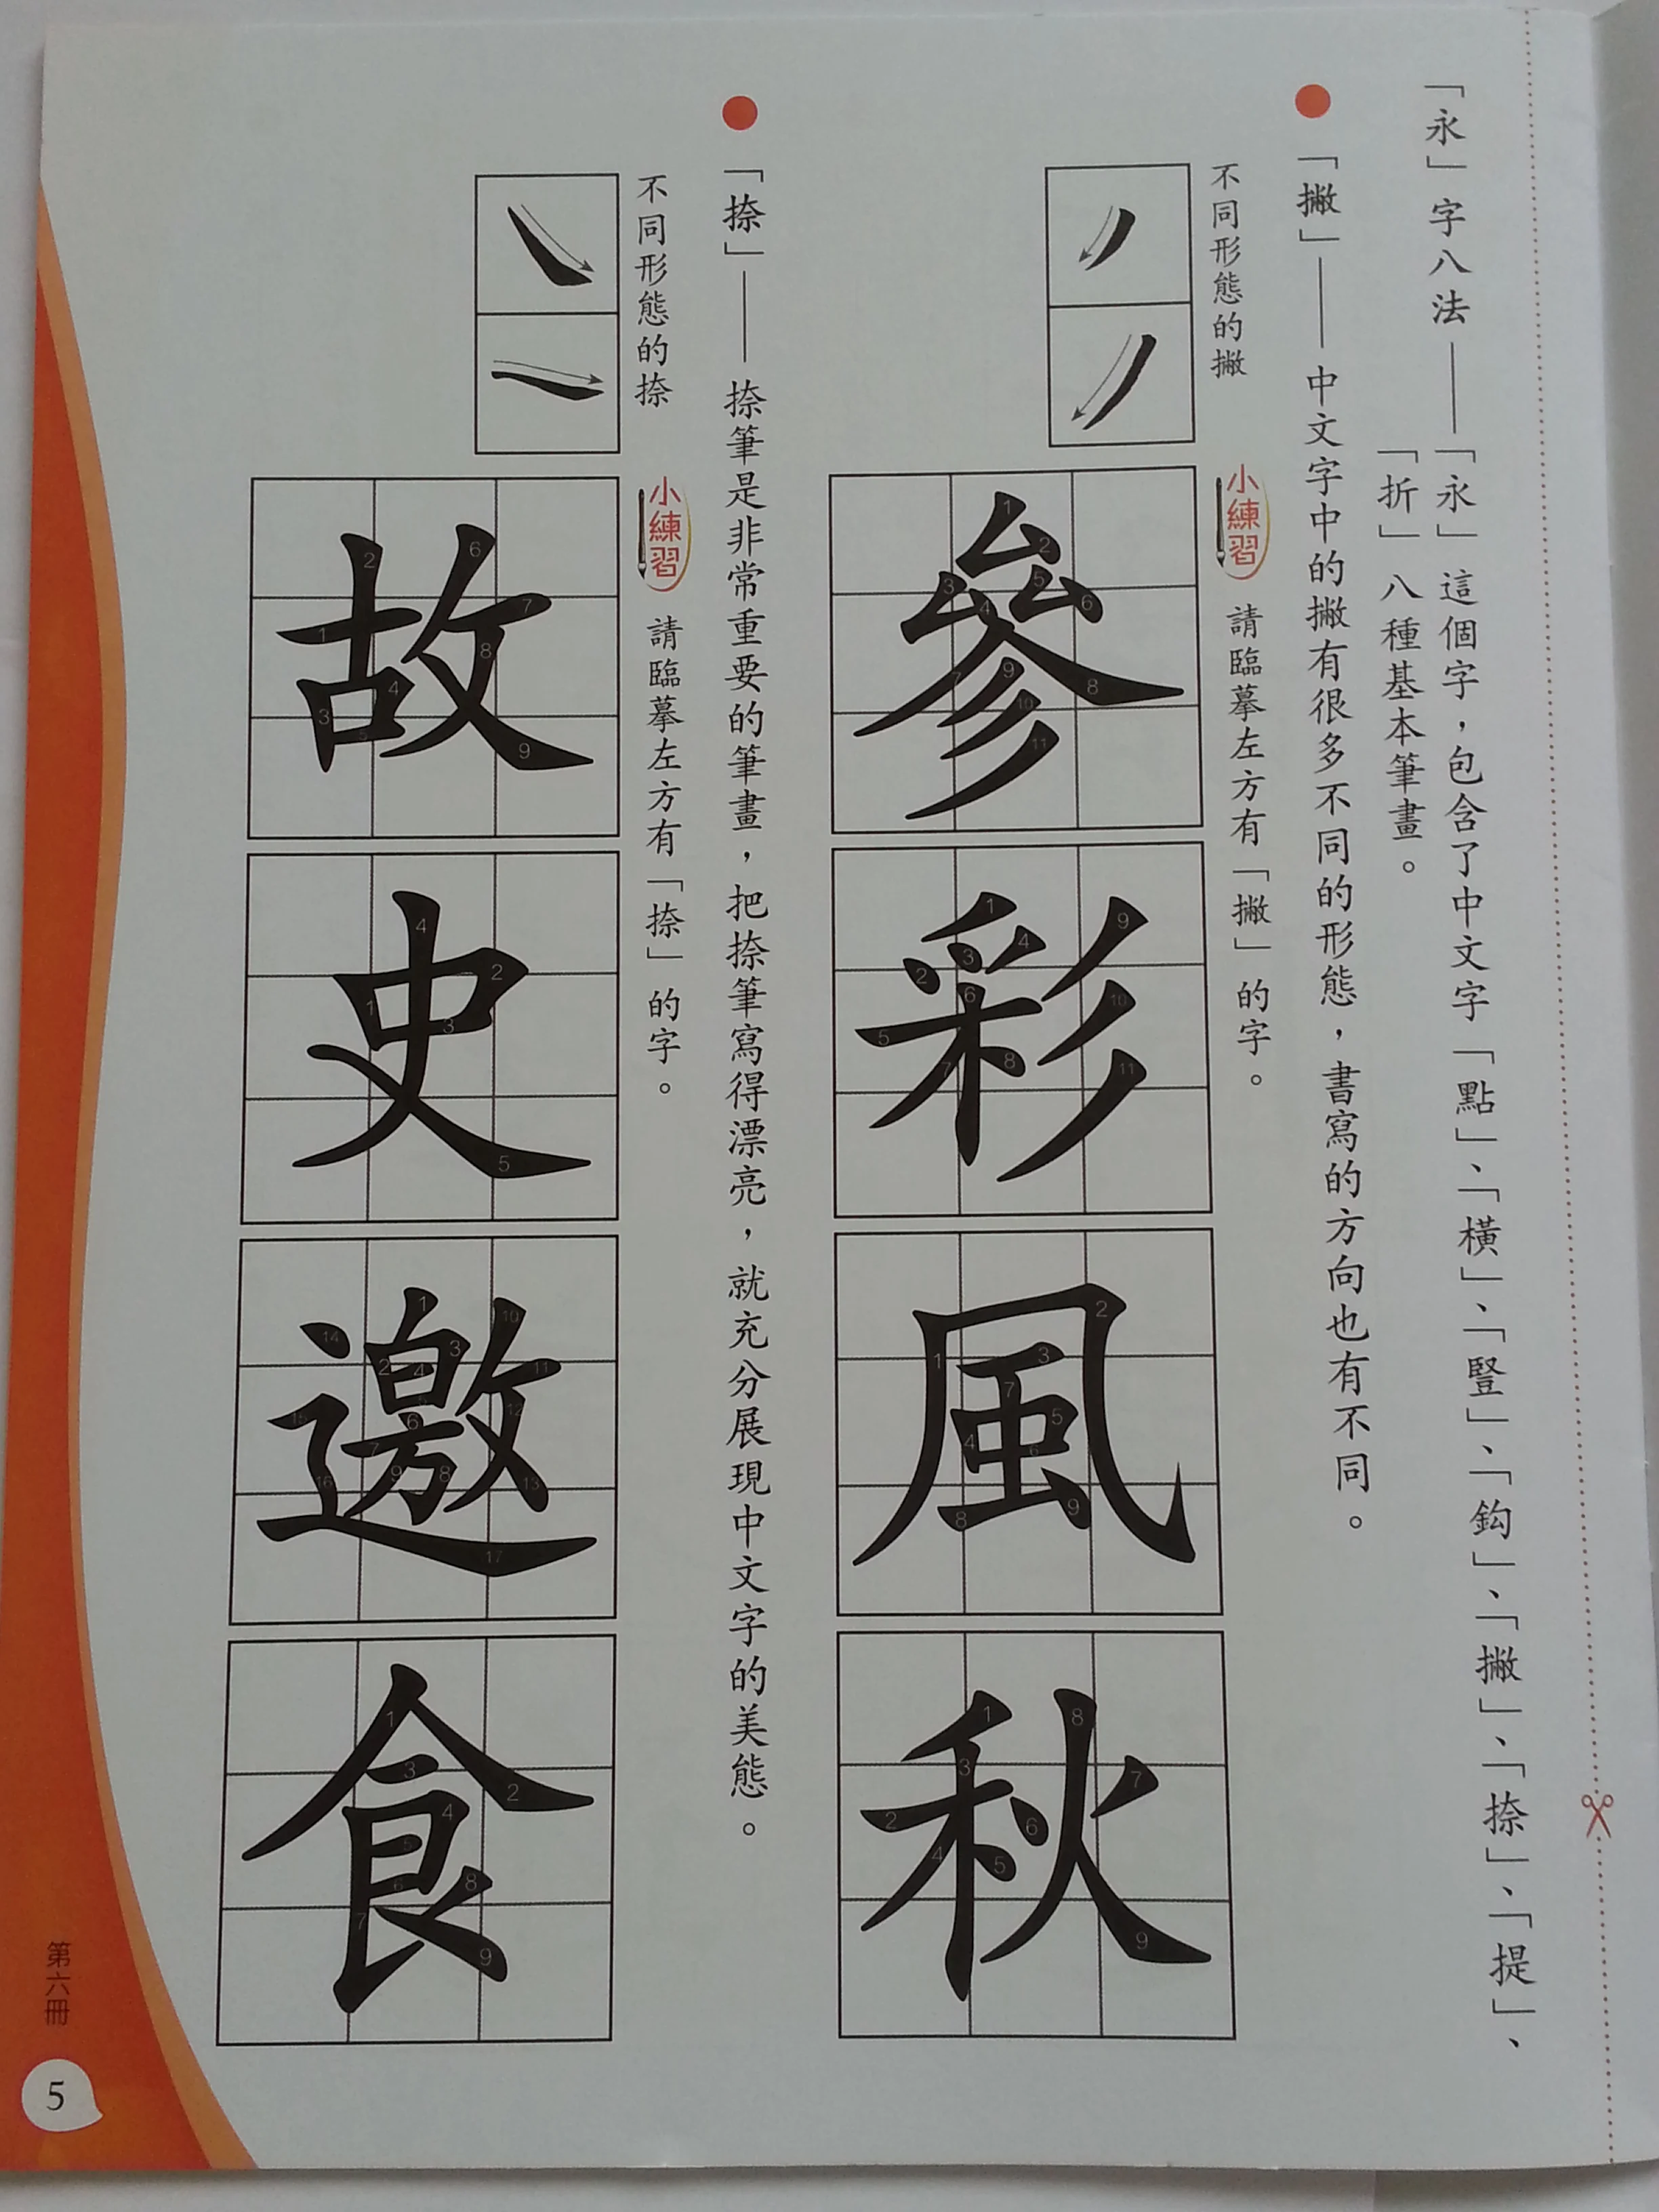 「永」字八法——「永」這個字，包含了中文字「點」、「橫」、「豎」、「鈎」、「撇」、「捺」、「提」、
「折」八種基本筆畫。
「撇」——中文字中的撇有很多不同的形態，書寫的方向也有不同。
不同形態的撇
小練習 請臨摹左方有「撇」的字。
參
彩
風
秋
「捺」——捺筆是非常重要的筆畫，把捺筆寫得漂亮，就充分展現中文字的美態。
不同形態的捺
小練習 請臨摹左方有「捺」的字。
故
史
邀
食
第六冊
5